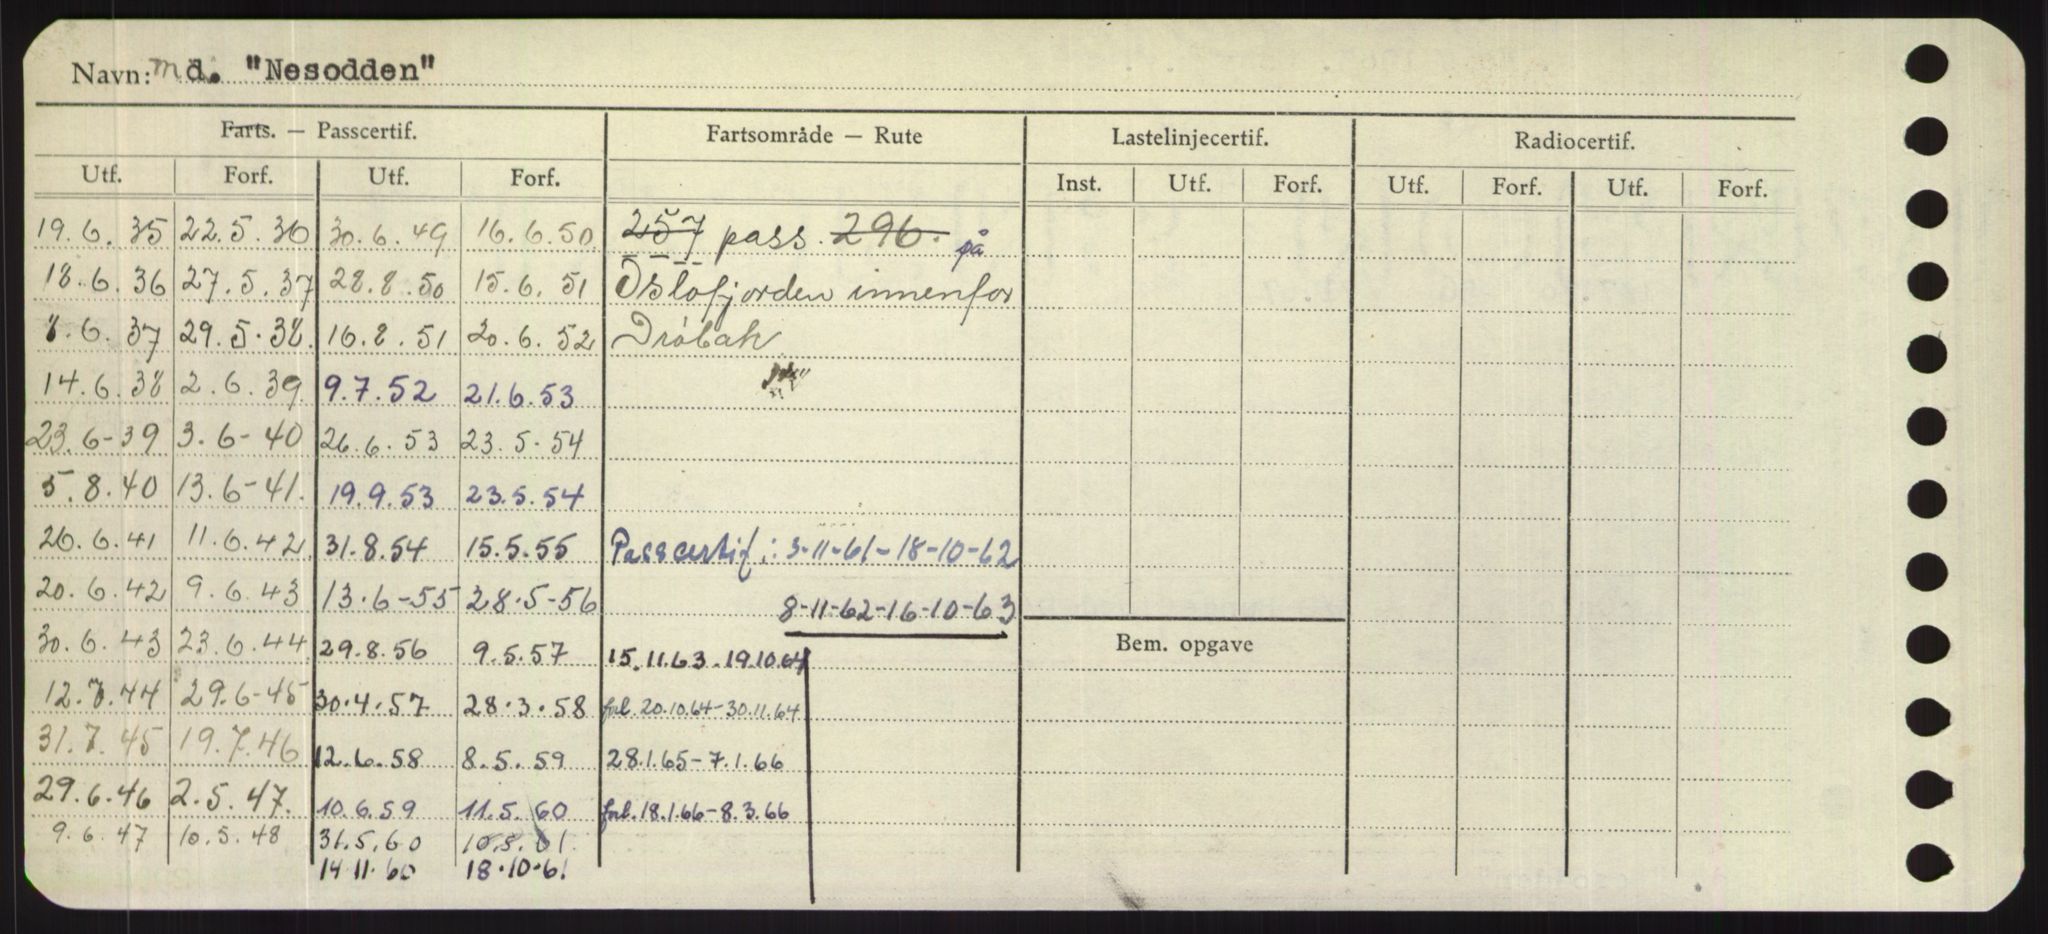 Navn: Md. "Nesodden"
Farts. — Passcertif. Fartsområde — Rute Lastelinjecertif. Radiocertif.
Utf. Forf. Utf. Forf. Inst. Utf. Forf. Utf. Forf. Utf. Forf.
19.6.35 22.5.36 30.6.49 16.6.50 257 pass. 296. på
18.6.36 27.5.37 28.8.50 15.6.51 Oslofjorden innenfor
8.6.37 29.5.38. 16.8.51 20.6.52 Drøbak
14.6.38 2.6.39 9.7.52 21.6.53
23.6-39 3.6-40 26.6.53 23.5.54
5.8.40 13.6-41. 19.9.53 23.5.54
26.6.41 11.6.42 31.8.54 15.5.55 Passcertif.: 3-11-61-18-10-62
20.6.42 9.6.43 13.6-55 28.5-56 8-11-62-16-10-63
30.6.43 23.6.44 29.8.56 9.5.57 15.11.63.19.10.64 Bem. opgave
12.7.44 29.6-45 30.4.57 28.3.58 forl. 20.10.64-30.11.64
31.7.45 19.7.46 12.6.58 8.5.59 28.1.65-7.1.66
29.6.46 2.5.47. 10.6.59 11.5.60 forl. 18.1.66-8.3.66
9.6.47 10.5.48 31.5.60 10.5.61.
14.11.60 18.10.61